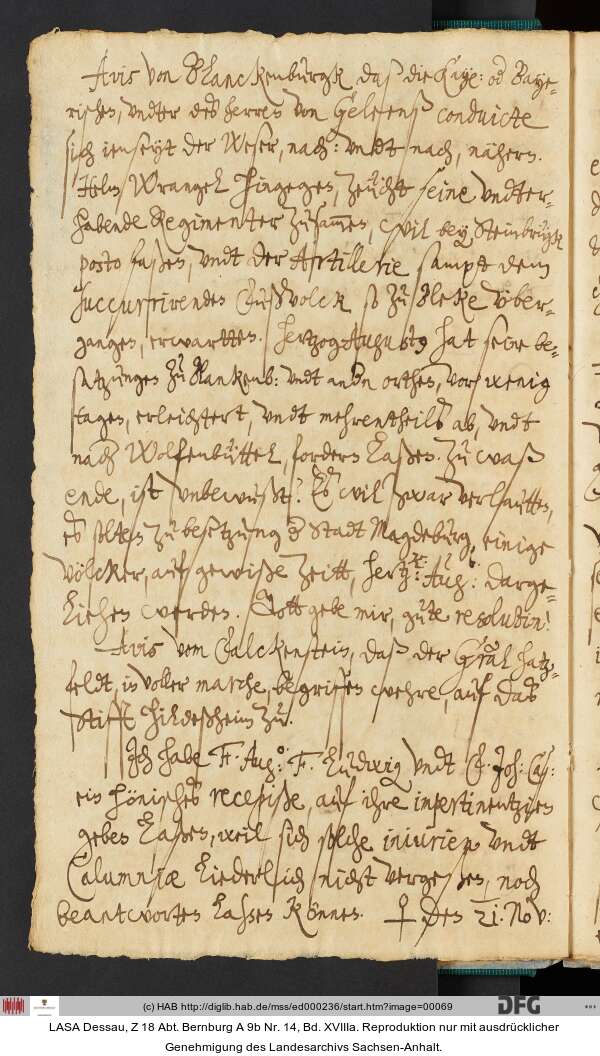 Avis von Blanckenburgk, daß die Kaye: od Baye-
rischen, undter des herren von Geleens conduicte
sich ienseyt der Weser, nach: undt nach, nähern.
Helm Wrangel hingegen, zeucht seine undter-
habende Regimenter zusamen, wil bey Steinbrügk
posto faßen, undt der Artillerie sampt dem
succurrirenden Fußvolck so zu Bleke über-
gangen, erwartten. Hertzog Augustus hat seine be-
satzungen zu Blankenb: undt andn orthen, vor wenig
tagen, erleichtert, undt mehrentheils ab, undt
nach Wolfenbüttel, fordern laßen. Zu waß
ende, ist unbewußt? Es wil zwar verlautten,
es solten zu besetzung d Stadt Magdeburg, einige
völcker, auf gewiße zeitt, hertz: Aug: darge-
liehen werden. Gott gebe mir, gute resolution!
Avis vom Falckenstein, daß der Graf Hatz-
feldt, in voller marche, begriffen wehre, auf das
Stifft Hildeßheim zu.
Ich habe F. Aug: F. Ludwig undt F. Joh: Cas:
ein hönisches recepisse, auf ihre impertinentzien
geben laßen, weil sich solche injurien undt
Calumniæ liederlich nicht vergeßen, noch
beantworten laßen können. ♀ den 21. Nov:
(c) HAB http://diglib.hab.de/mss/ed000236/start.htm?image=00069
DFG
LASA Dessau, Z 18 Abt. Bernburg A 9b Nr. 14, Bd. XVIIIa. Reproduktion nur mit ausdrücklicher
Genehmigung des Landesarchivs Sachsen-Anhalt.